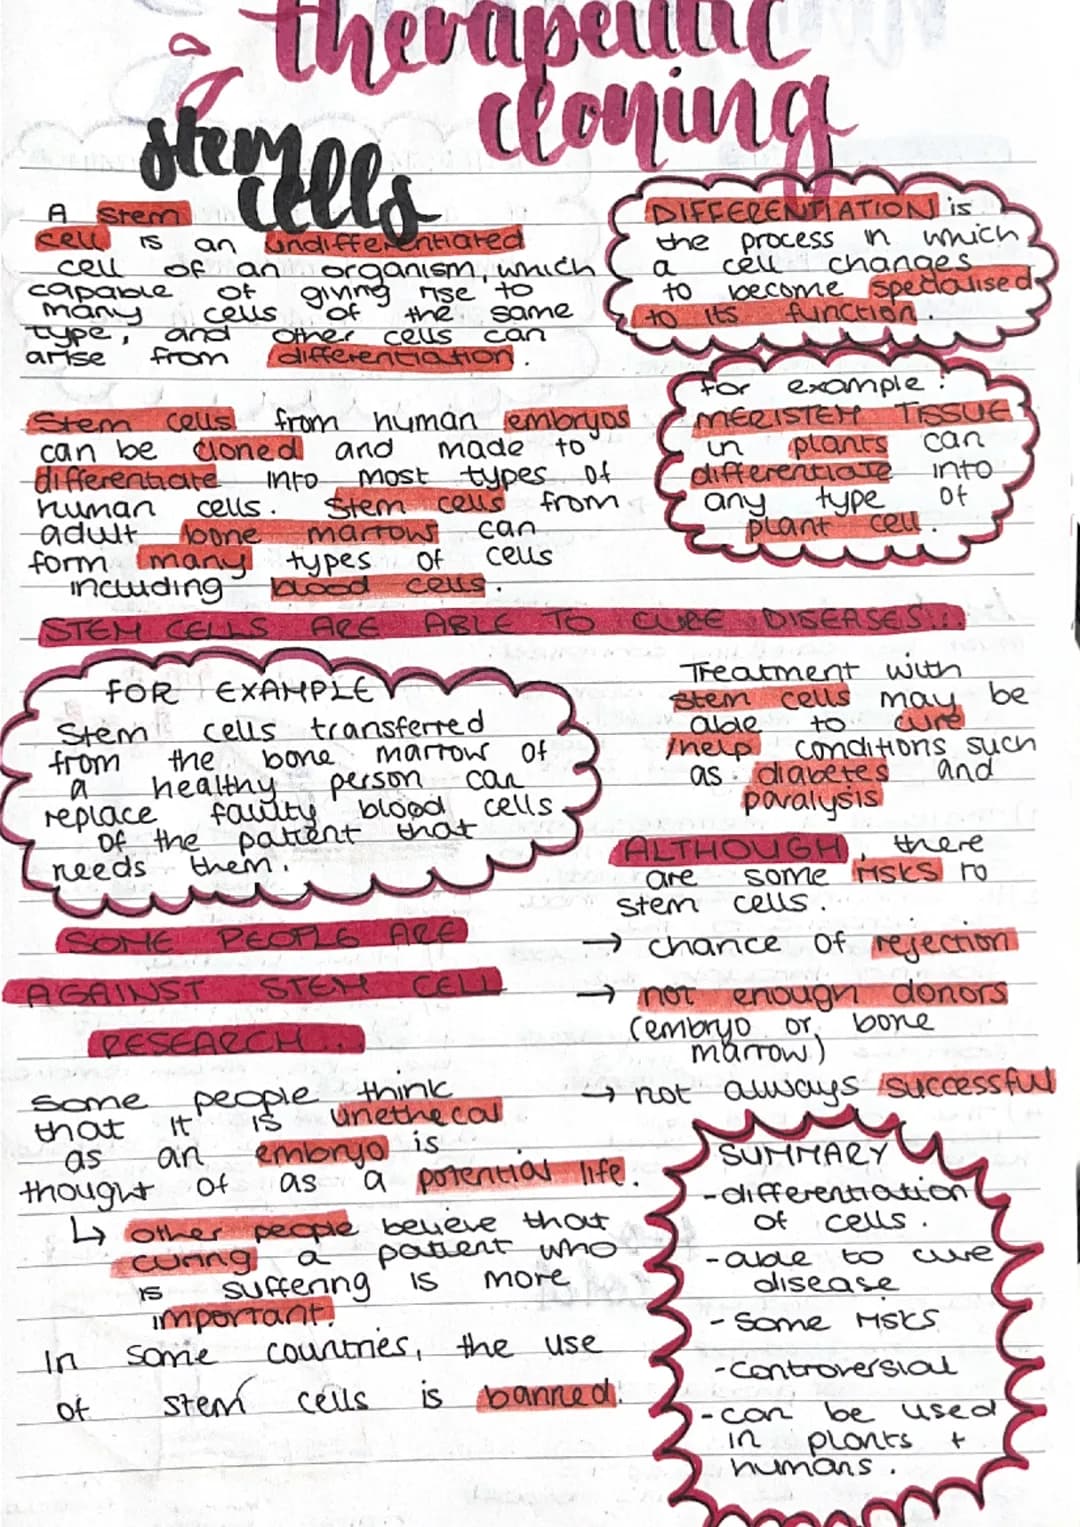 therapeutic
cloning
& stem
cells
A stem
cell is an undifferentiated
cell of an organism, which
capable of giving rise to
many cells of the same
type, and other cells can
arise from differentiation.
DIFFERENTIATION is
the process in which
a cell changes
to become specialised
to its function.
for example:
MERISTEM TISSUE
in plants can
differentiate into
any type of
plant cell.
Stem cells from human embryos
can be cloned and made to
differentiate into most types of
human cells. Stem cells from
adult bone marrows can
form many types of cells
including blood cells.
STEM CELLS ARE ABLE TO CURE DISEASES...
FOR EXAMPLE
Stem cells transferred
from the bone marrow of
a healthy person can
replace faulty blood cells
of the patient that
needs them.
Treatment with
stem cells may be
able to cure
/help conditions such
as diabetes and
paralysis
ALTHOUGH, there
are some risks to
stem cells.
→ chance of rejection
→ not enough donors
(embryo or bone
marrow)
→ not always successful
SOME PEOPLE ARE
AGAINST STEM CELL
RESEARCH...
Some people think
that it is unethecal
as an embryo is
thought of as a potential life.
↳ other people believe that
curing a patient who
is suffering is more
important.
In some countries, the use
of stem cells is banned.
SUMMARY
- differentiation
of cells.
- able to cure
disease
- some risks
- controversial
- can be used
in plants +
humans.